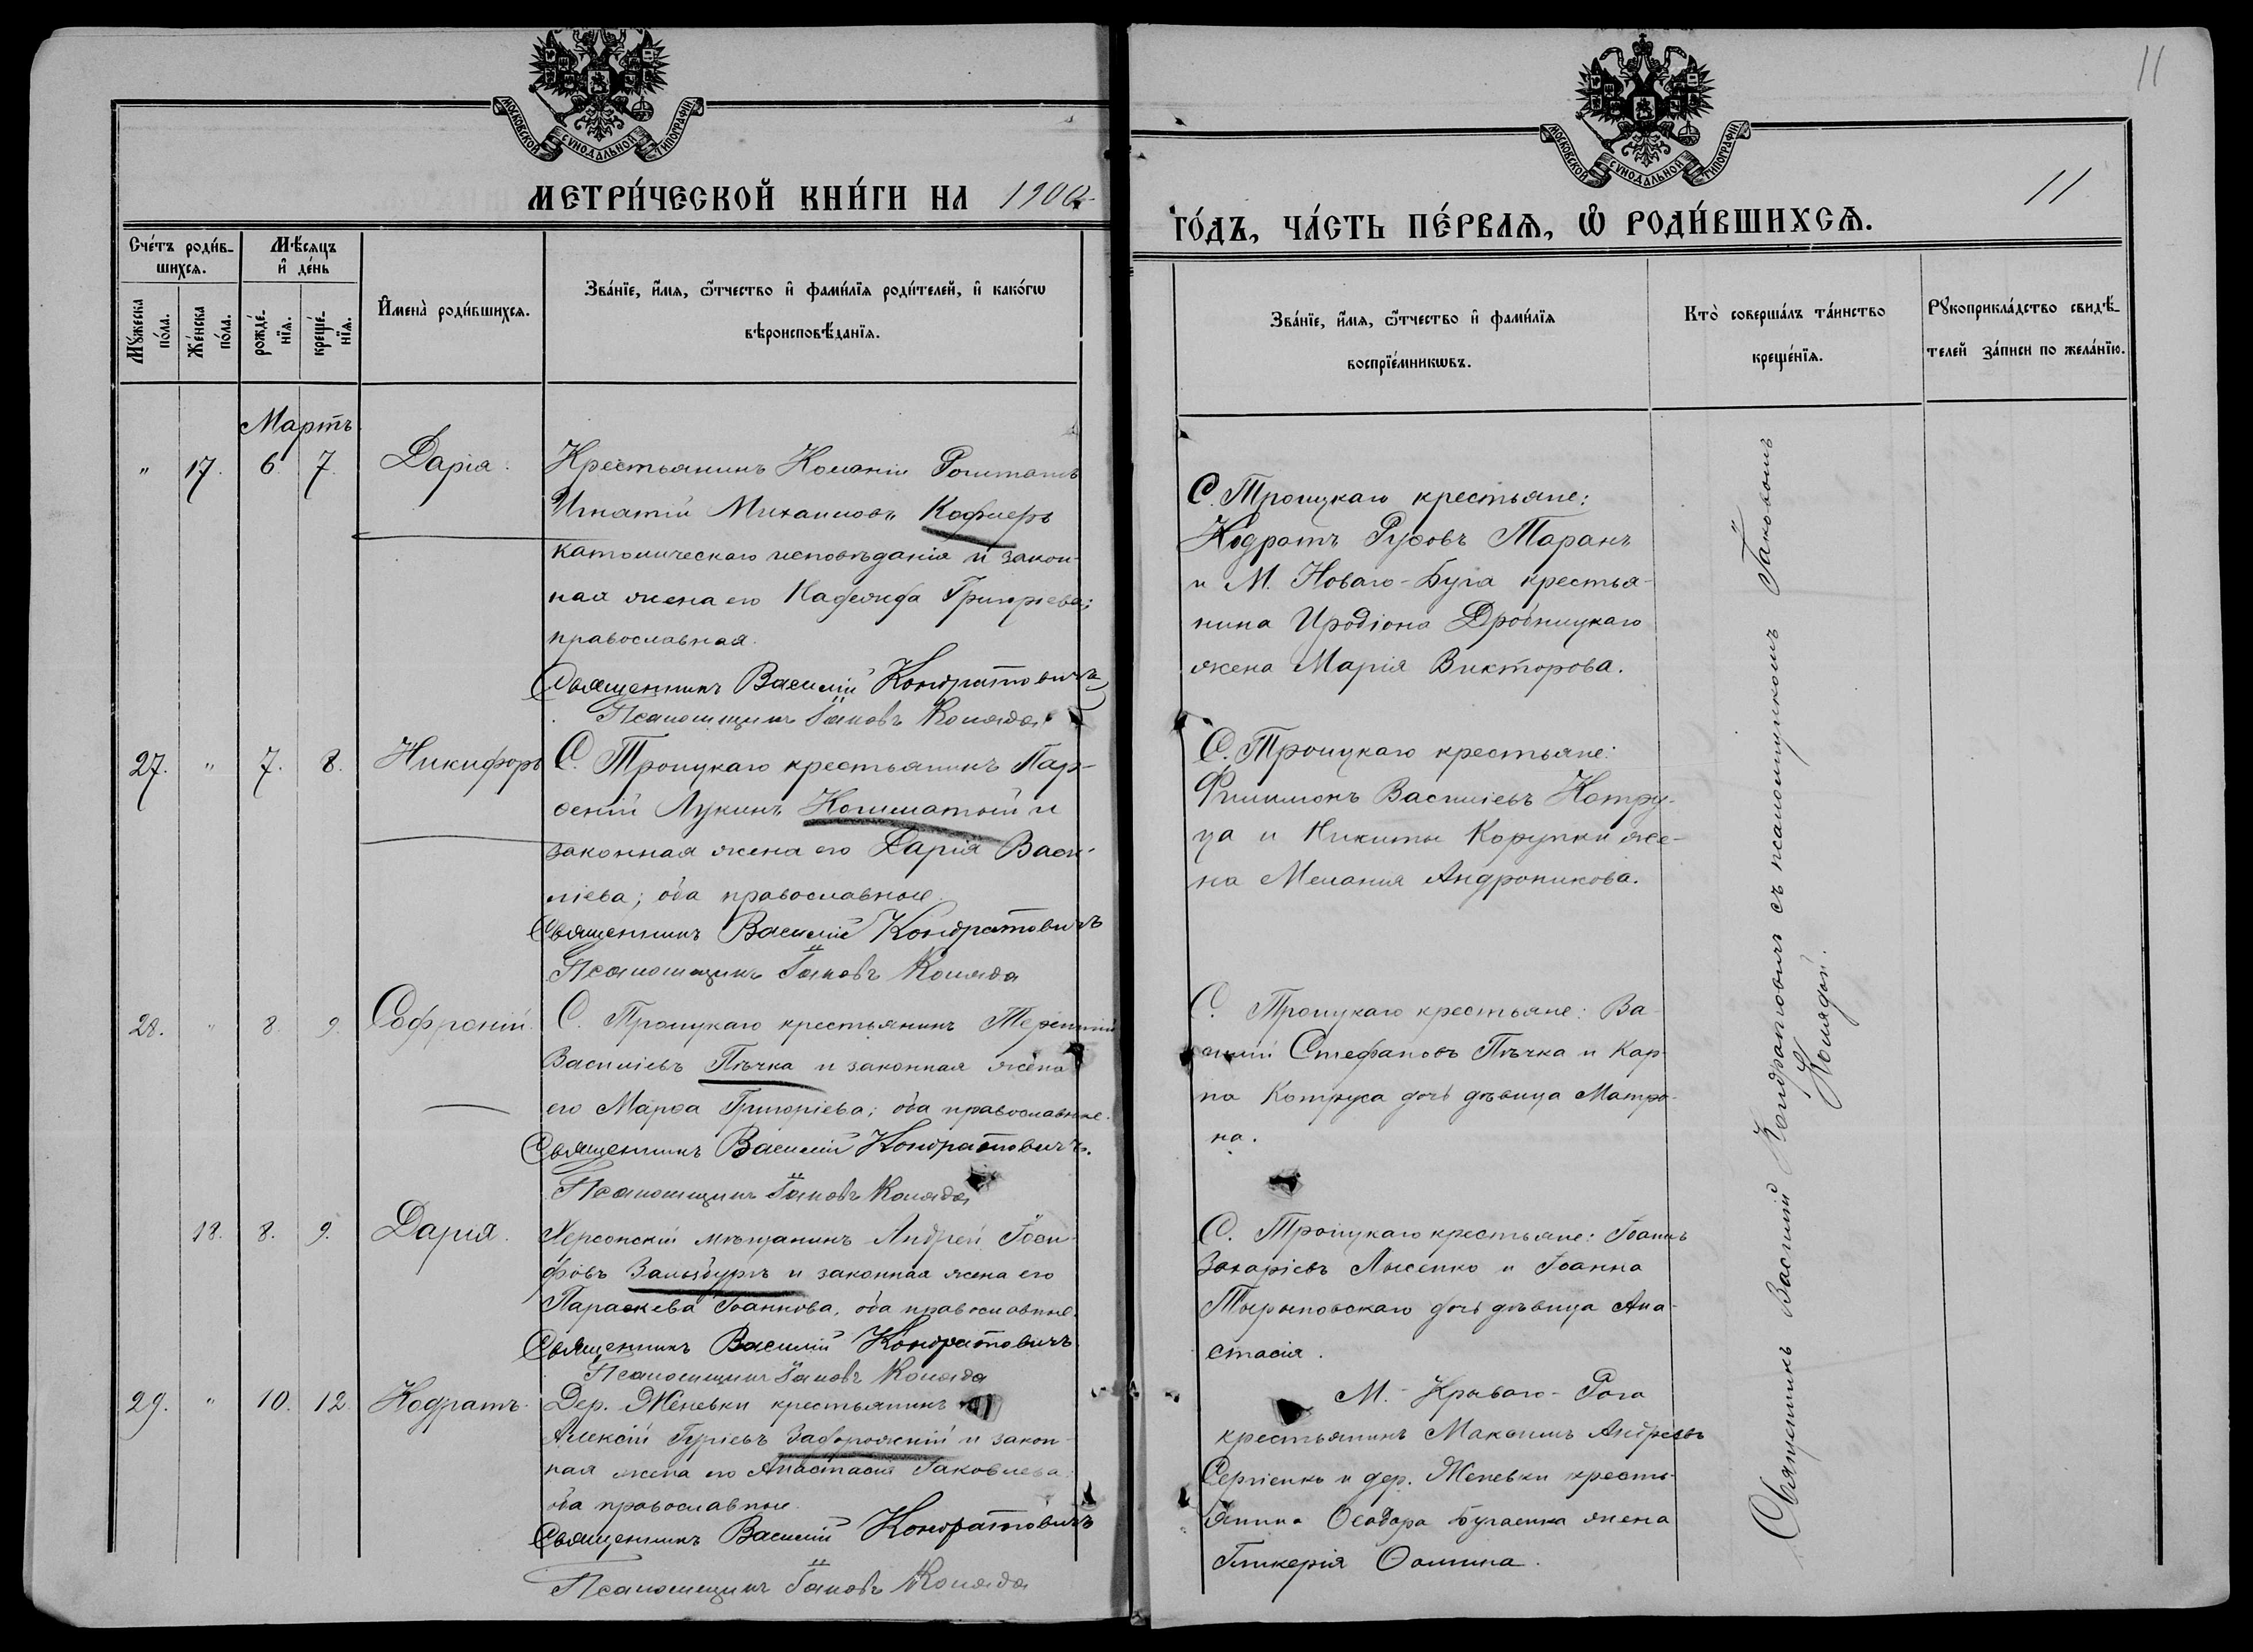 11
МОСКОВСКОЙ СУНОДАЛЬНОЙ ТИПОГРАФІИ
МОСКОВСКОЙ СУНОДАЛЬНОЙ ТИПОГРАФІИ
МЕТРИ́ЧЕСКОЙ КНИ́ГИ НА 1900
ГО́ДЪ, ЧА́СТЬ ПЕ́РВАЯ, Ѡ РОДИ́ВШИХСЯ.
11
Сче́тъ роди́в-
шихся.
Мꙋ́жеска по́ла.
Же́нска по́ла.
Мѣ́сяцъ
и де́нь
рожде́-
нїя.
креще́-
нїя.
Имена̀ роди́вшихся.
Зва́нїе, и́мя, ѻ́тчество и фами́лїя роди́телей, и како́гѡ
вѣроисповѣ́данїя.
Зва́нїе, и́мя, ѻ́тчество и фами́лїя
воспрїе́мникѡвъ.
Кто̀ соверша́лъ та́инство
креще́нїя.
Рꙋкоприкла́дство свидѣ́-
телей за́писи по жела́нїю.
Мартъ
" 17. 6. 7. Дарія.
Крестьянинъ Колоніи Раштатъ
Игнатій Михаиловъ Кофлеръ
католическаго исповѣданія и закон-
ная жена его Надежда Григорьева;
православная.
Священникъ Василій Кондратовичъ
Псаломщикъ Іаковъ Коляда
С. Троицкаго крестьяне:
Кодратъ Руфовъ Таранъ
и М. Новаго-Буга крестья-
нина Иродіона Дробницкаго
жена Марія Викторова.
27. " 7. 8. Никифоръ
С. Троицкаго крестьянинъ Пар-
ѳеній Лукинъ и
законная жена его Дарія Васи-
ліева; оба православные.
Священникъ Василій Кондратовичъ
Псаломщикъ Іаковъ Коляда
С. Троицкаго крестьяне:
Филимонъ Василіевъ Котру-
ца и Никиты Корупки же-
на Меланія Андроникова.
28. " 8. 9. Софроній.
С. Троицкаго крестьянинъ Терентій
Василіевъ Пѣчка и законная жена
его Марѳа Григоріева; оба православные.
Священникъ Василій Кондратовичъ.
Псаломщикъ Іаковъ Коляда
С. Троицкаго крестьяне: Ва-
силій Стефановъ Пѣчка и Кар-
па Котруса дочь дѣвица Матро-
на.
18. 8. 9. Дарія.
Херсонскій мѣщанинъ Андрей Іоси-
фовъ Зальцбургъ и законная жена его
Параскева Іоаннова, оба православные.
Священникъ Василій Кондратовичъ
Псаломщикъ Іаковъ Коляда
С. Троицкаго крестьяне: Іоаннъ
Захаріевъ Лысенко и Іоанна
дочь дѣвица Ана-
стасія.
29. " 10. 12. Кодратъ.
Дер. Женевки крестьянинъ
Алексій Гуріевъ Забороженій и закон-
ная жена его Анастасія Іаковлева
оба православные.
Священникъ Василій Кондратовичъ
Псаломщикъ Іаковъ Коляда
М. Криваго-Рога
крестьянинъ Максимъ Андреевъ
Сергіенко и дер. Женевки кресть-
янина Ѳеодора Бугаенка жена
Гликерія Ѳомина.
Священникъ Василій Кондратовичъ съ псаломщикомъ Іаковомъ
Колядой.